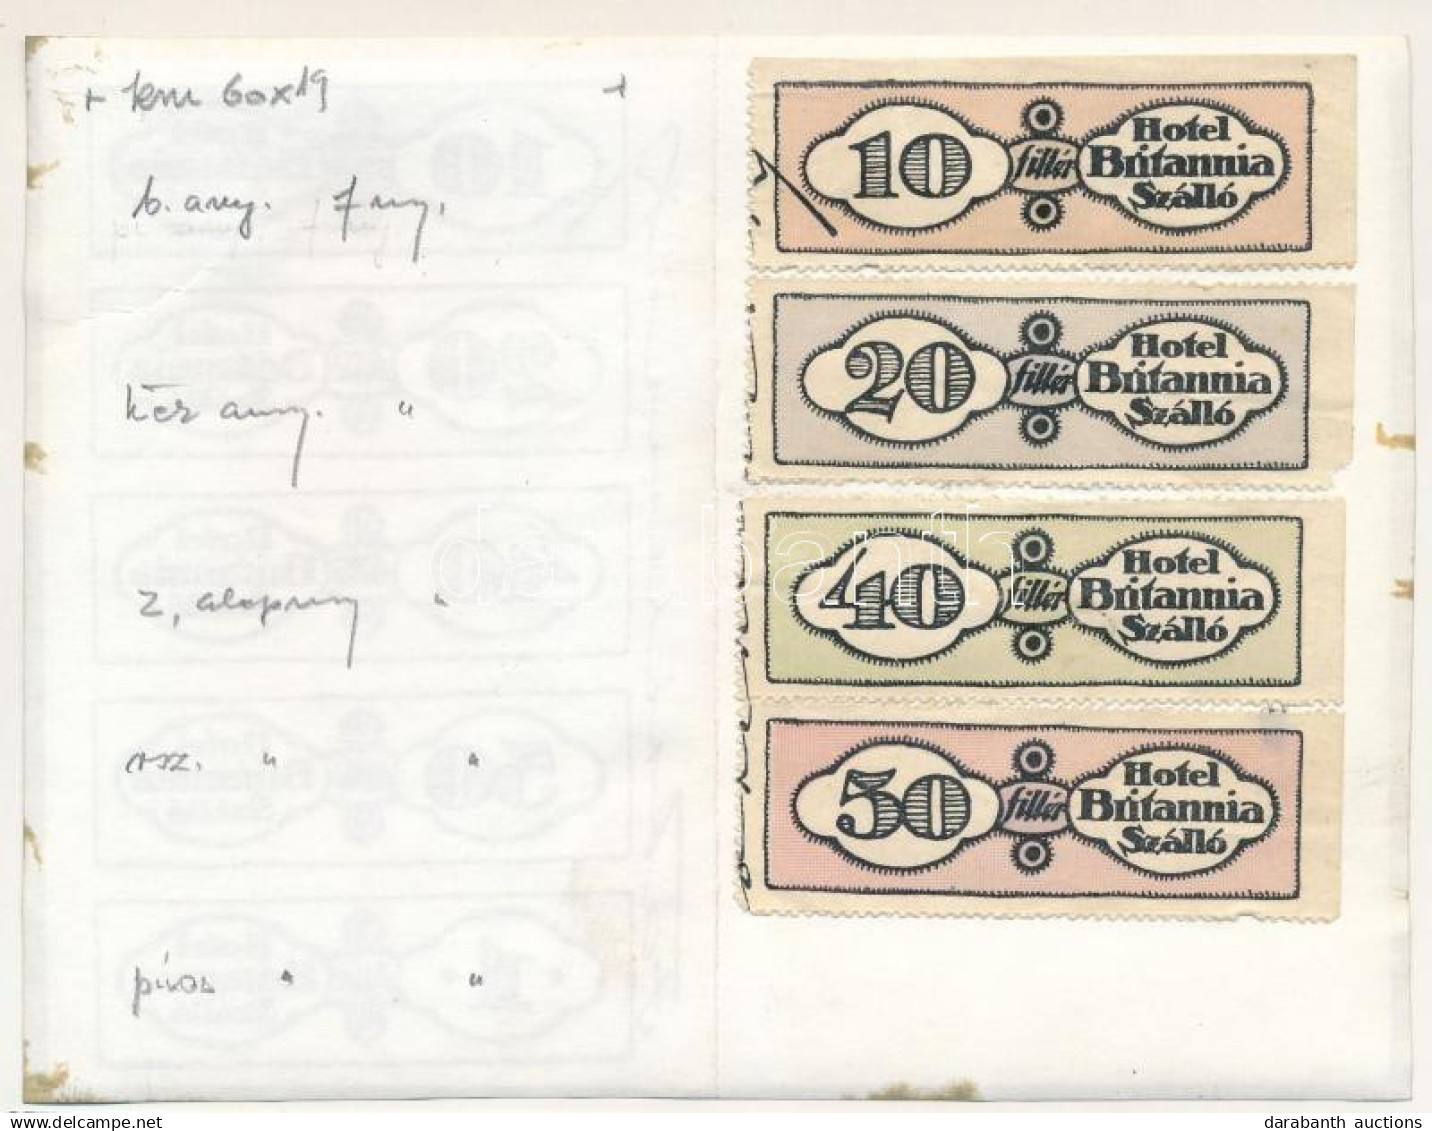 + kem 60x19 +
b. any. 7 ny.
kéz any. "
z, alapny "
rsz. " "
piros " "
10 fillér Hotel Britannia Szálló
20 fillér Hotel Britannia Szálló
40 fillér Hotel Britannia Szálló
50 fillér Hotel Britannia Szálló
darabanth
darabanth auctions